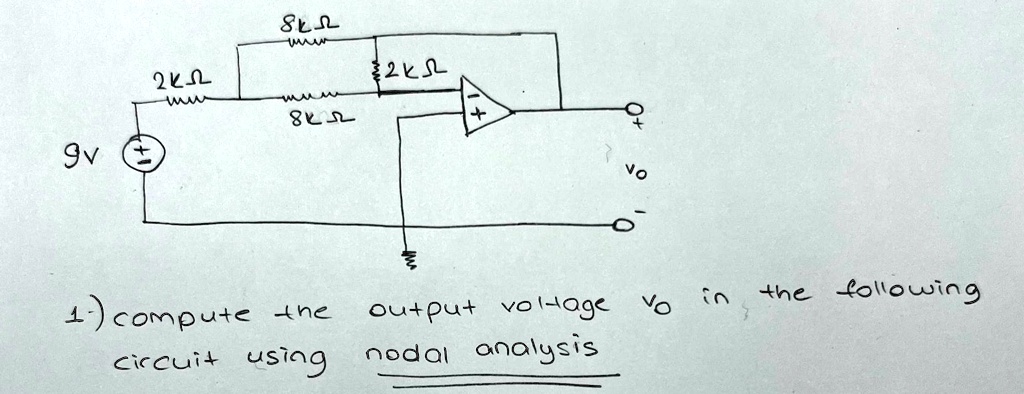 8kΩ
2kΩ
2kΩ
8kΩ
-
+
9v
+
-
+
vo
-
1-) compute the output voltage vo in the following
circuit using nodal analysis